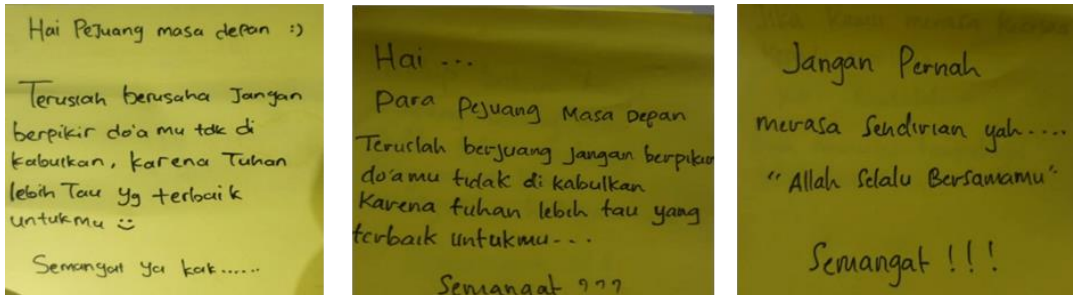 Hai Pejuang masa depan :)
Teruslah berusaha Jangan
berpikir do'a mu tdk di
kabulkan, karena Tuhan
lebih Tau yg terbaik
untukmu ☺
Semangat ya kak......
Hai ...
Para Pejuang Masa Depan
Teruslah berjuang jangan berpikir
do'amu tidak di kabulkan
Karena tuhan lebih tau yang
terbaik untukmu...
Semangat ???
Jangan Pernah
merasa Sendirian yah....
"Allah Selalu Bersamamu"
Semangat !!!